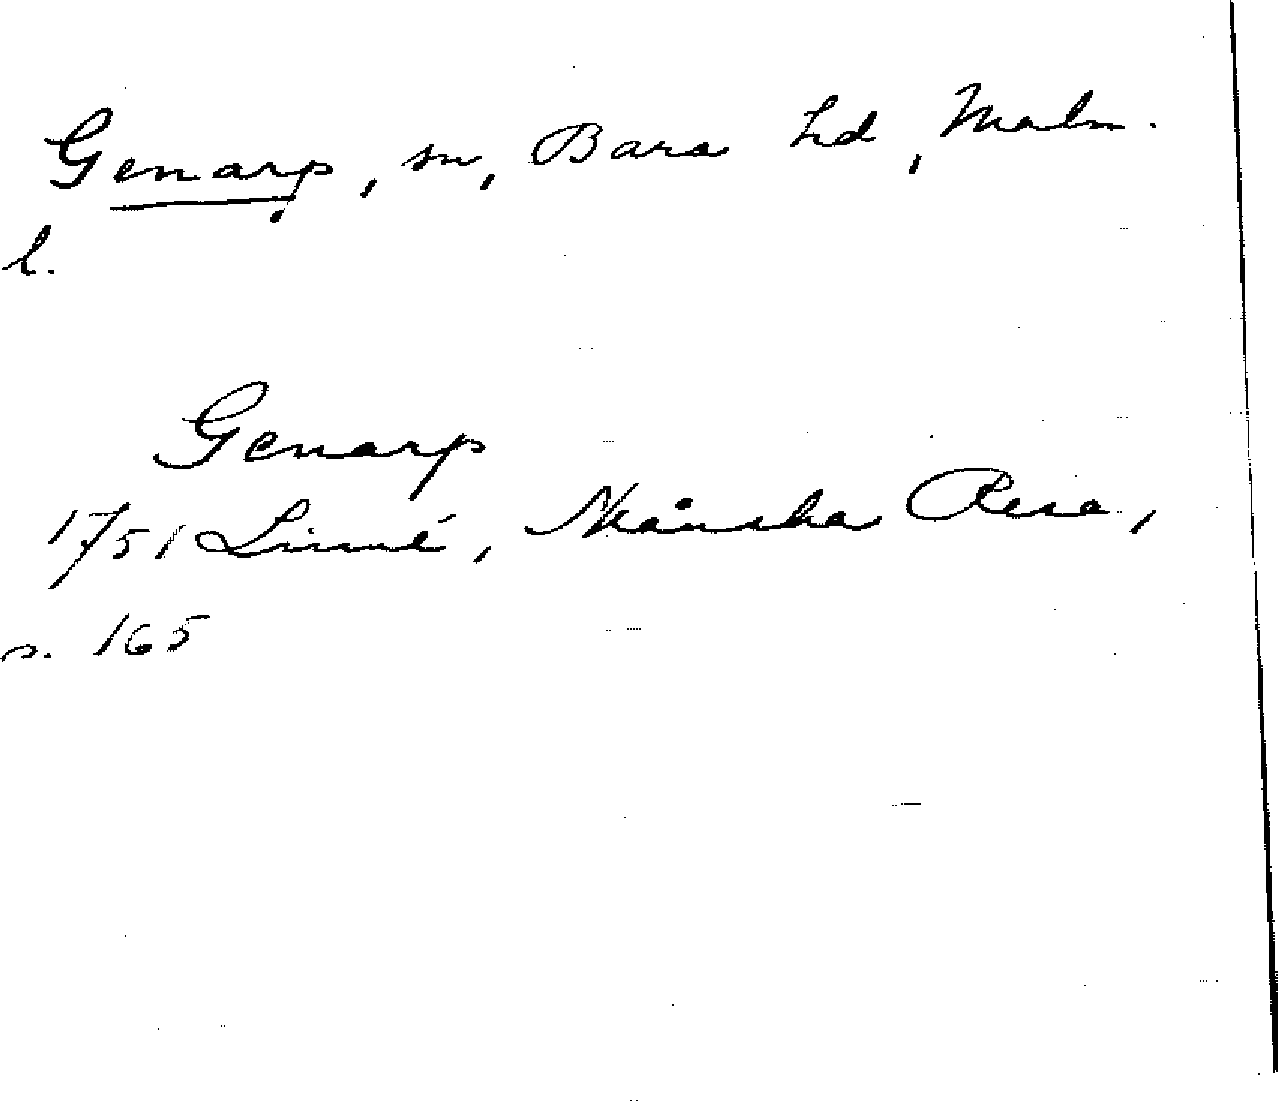 Genarp, sn, Bara hd, Malm.
l.
Genarp
1751 Linné, Skånska Resa,
s. 165